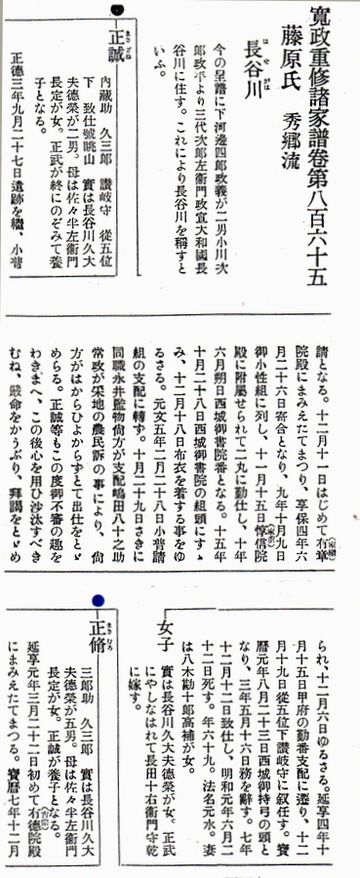 寛政重修諸家譜卷第八百六十五
藤原氏 秀郷流
長谷川
はせがは
今の呈譜に下河邊四郎政義が二男小川次
郎政平より三代次郎左衞門政宣大和國長
谷川に住す。これにより長谷川を稱すと
いふ。
正誠
まさざね
内藏助 久三郎 讃岐守 從五位
下 致仕號眺山 實は長谷川久大
夫德榮が二男。母は佐々半左衞門
長定が女。正武が終にのぞみて養
子となる。
正德三年九月二十七日遺跡を繼、小普
請となる。十二月十一日はじめて有章
(家繼)
院殿にまみえたてまつり、享保四年六
月二十六日寄合となり、九年十月九日
御小性組に列し、十一月十五日惇信院
(家重)
殿に附屬せられて二丸に勤仕し、十年
六月朔日西城御書院番となる。十五年
十月二十八日西城御書院の組頭にすゝ
み、十二月十八日布衣を着する事をゆ
るさる。元文五年二月二十八日小普請
組の支配に轉ず。十月二十九日さきに
同職永井監物尙方が支配嶋田八十之助
常政が采地の農民訴の事により、尙
方がはからひよからずとて出仕をとゞ
めらる。正誠等もこの度御不審の趣を
わきまへ、この後心を用ひ沙汰すべき
むね、嚴命をかうぶり、拜謁をとゞめ
られ、十二月六日ゆるさる。延享四年十
月十五日甲府の勤番支配に遷り、十二
月十九日從五位下讃岐守に叙任す。寶
曆元年八月二十三日西城御持弓の頭と
なり、三年五月十六日務を辭す。七年
十二月十二日致仕し、明和元年六月二
十二日死す。年六十九。法名元水。妻
は八木勘十郎高補が女。
女子
實は長谷川久大夫德榮が女。正武
にやしなはれて長田十右衞門守乾
に嫁す。
正脩
まさひろ
三郎助 久三郎 實は長谷川久大
夫德榮が五男。母は佐々半左衞門
長定が女。正誠が養子となる。
延享元年三月二十二日初めて有德院殿
(吉宗)
にまみえたてまつる。寶曆七年十二月